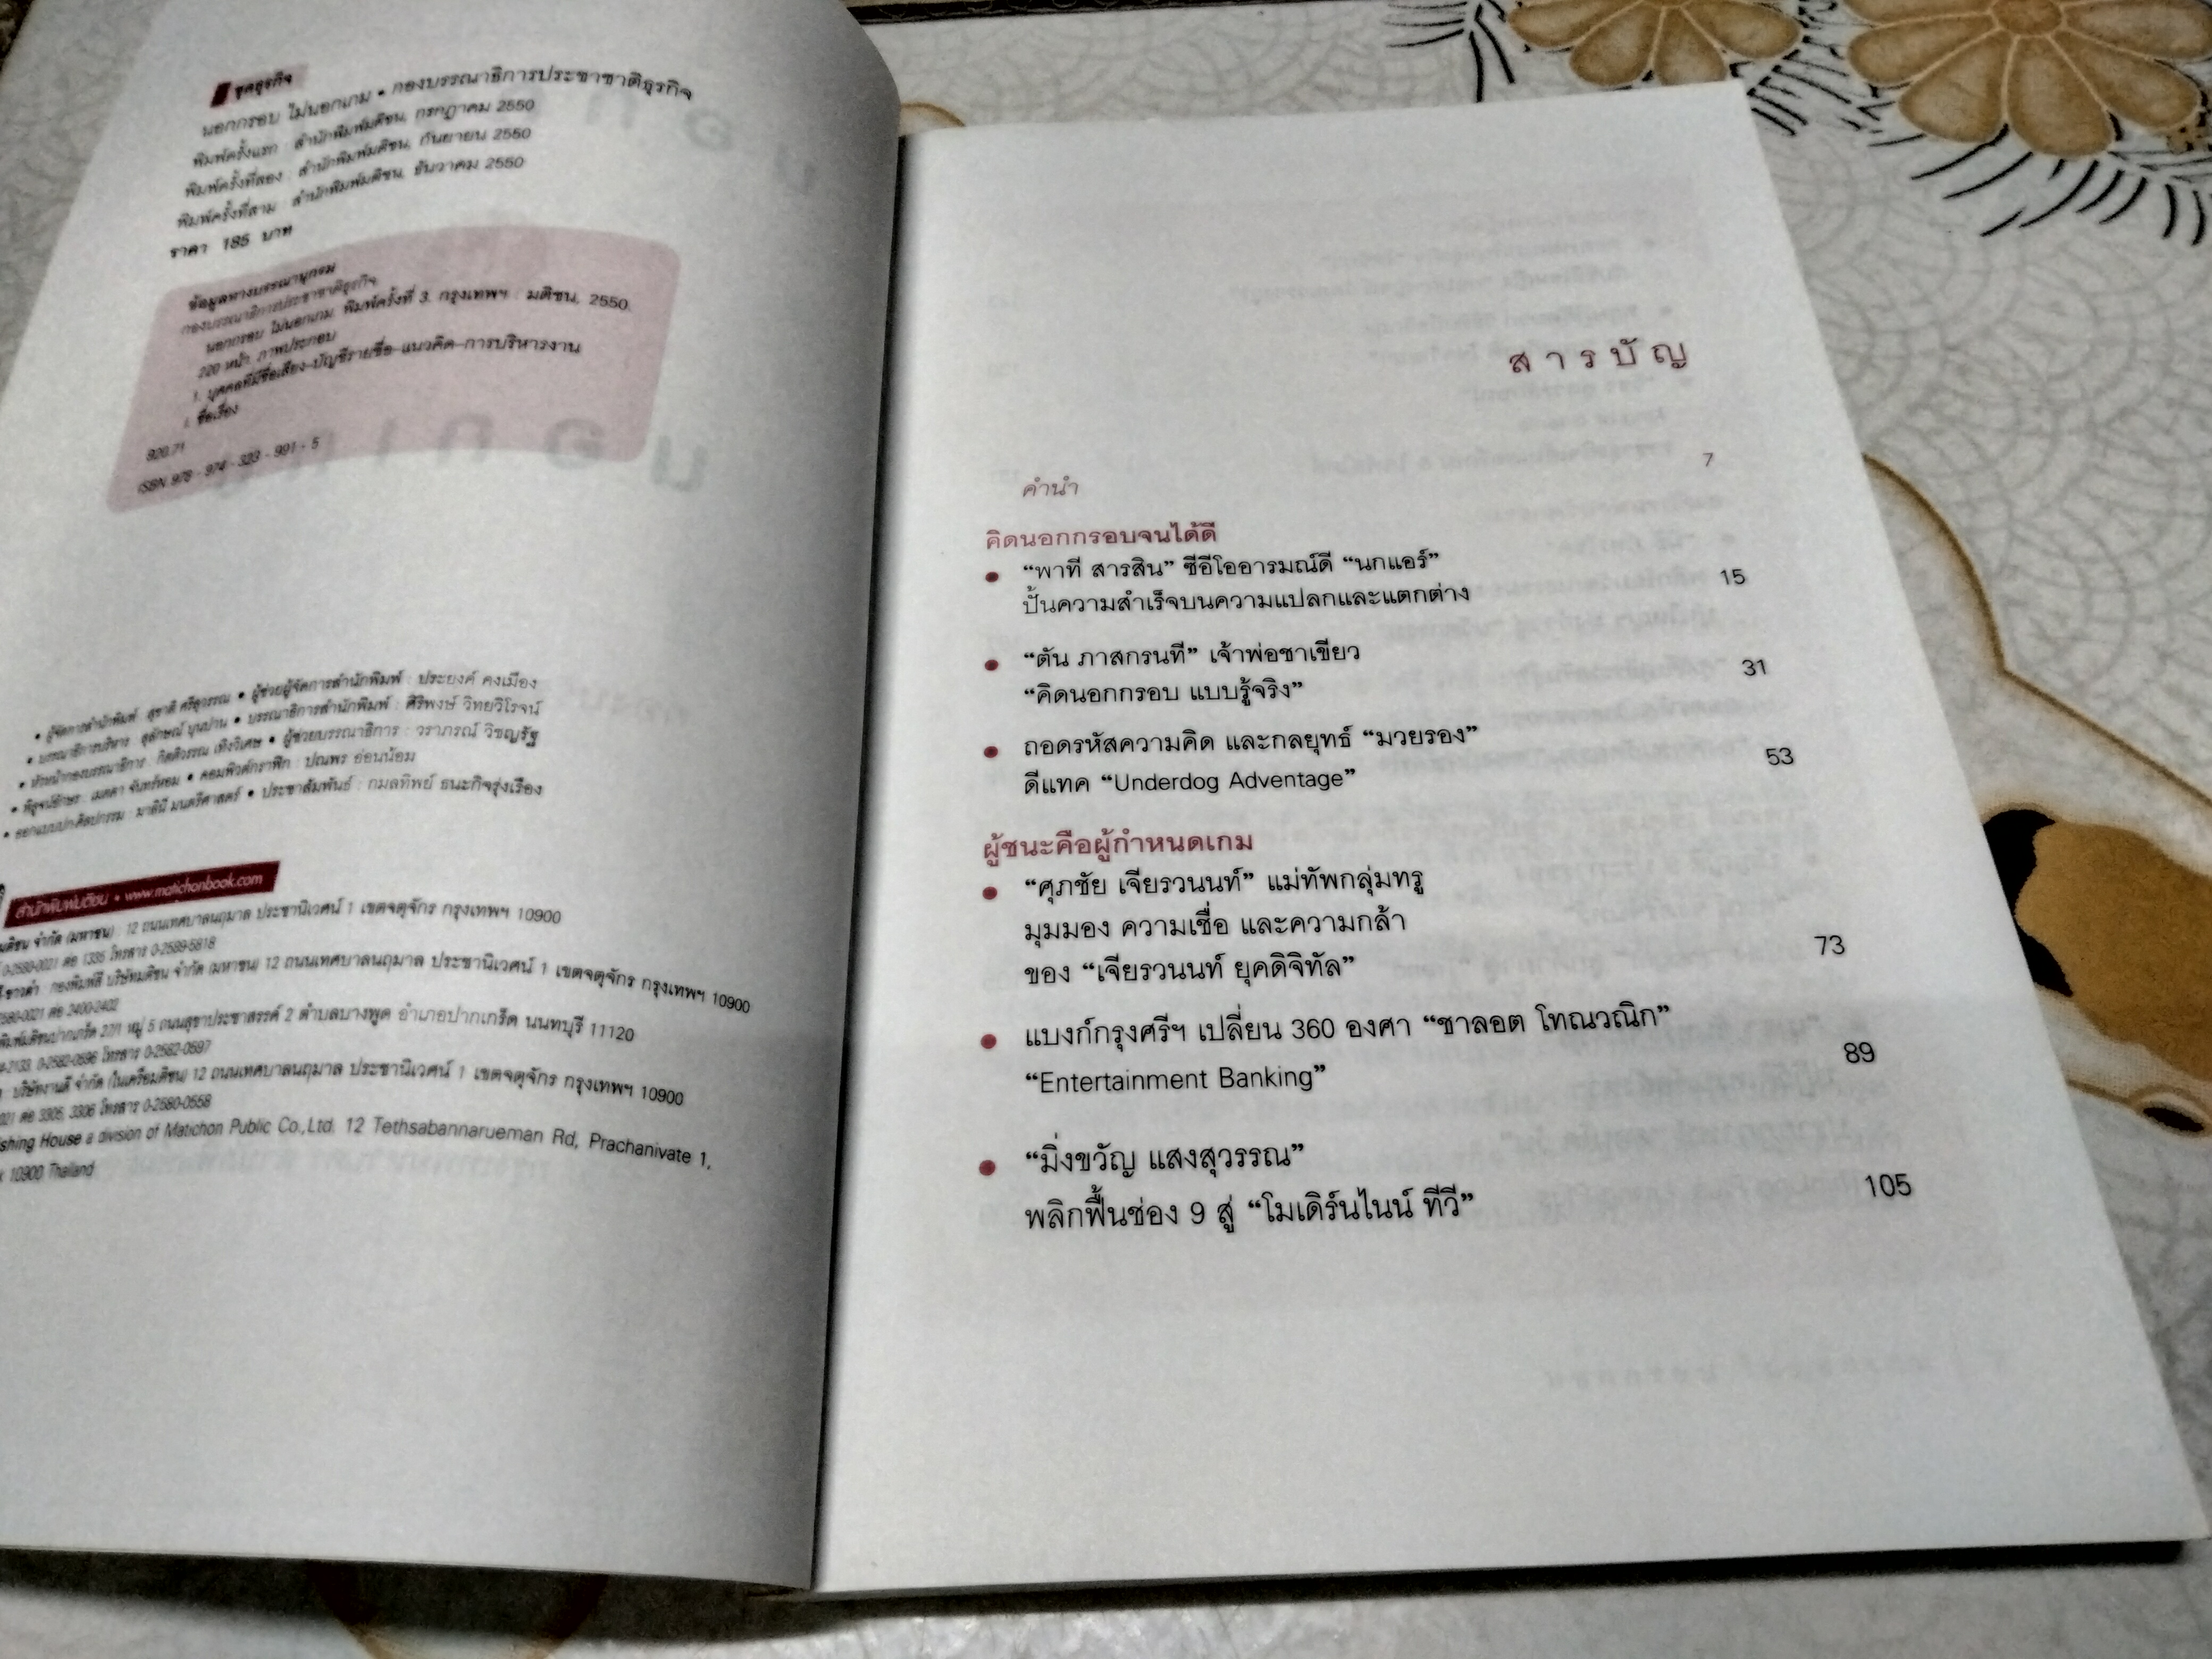 ชุดธุรกิจ
นอกกรอบ ไม่นอกเกม • กองบรรณาธิการประชาชาติธุรกิจ
พิมพ์ครั้งแรก : สำนักพิมพ์มติชน, กรกฎาคม 2550
พิมพ์ครั้งที่สอง : สำนักพิมพ์มติชน, กันยายน 2550
พิมพ์ครั้งที่สาม : สำนักพิมพ์มติชน, ธันวาคม 2550
ราคา 185 บาท
ข้อมูลทางบรรณานุกรม
กองบรรณาธิการประชาชาติธุรกิจ
นอกกรอบ ไม่นอกเกม. พิมพ์ครั้งที่ 3. กรุงเทพฯ : มติชน, 2550.
220 หน้า. ภาพประกอบ
1. บุคคลที่มีชื่อเสียง–บัญชีรายชื่อ–แนวคิด–การบริหารงาน
I. ชื่อเรื่อง
920.71
ISBN 978 - 974 - 323 - 991 - 5
• ผู้จัดการสำนักพิมพ์ : สุชาติ ศรีสุวรรณ • ผู้ช่วยผู้จัดการสำนักพิมพ์ : ประยงค์ คงเมือง
• บรรณาธิการบริหาร : สุลักษณ์ บุนปาน • บรรณาธิการสำนักพิมพ์ : ศิริพงษ์ วิทยวิโรจน์
• หัวหน้ากองบรรณาธิการ : กิตติวรรณ เทิงวิเศษ • ผู้ช่วยบรรณาธิการ : วราภรณ์ วิชญรัฐ
• พิสูจน์อักษร : เมตตา จันทร์หอม • คอมพิวต์กราฟิก : ปณพร อ่อนน้อม
• ออกแบบปก-ศิลปกรรม : มาลินี มนตรีศาสตร์ • ประชาสัมพันธ์ : กมลทิพย์ ธนะกิจรุ่งเรือง
สำนักพิมพ์มติชน • www.matichonbook.com
มติชน จำกัด (มหาชน) : 12 ถนนเทศบาลนฤมาล ประชานิเวศน์ 1 เขตจตุจักร กรุงเทพฯ 10900
0-2580-0021 ต่อ 1335 โทรสาร 0-2589-5818
กองพิมพ์สี บริษัทมติชน จำกัด (มหาชน) 12 ถนนเทศบาลนฤมาล ประชานิเวศน์ 1 เขตจตุจักร กรุงเทพฯ 10900
2580-0021 ต่อ 2400-2402
พิมพ์มติชนปากเกร็ด 27/1 หมู่ 5 ถนนสุขาประชาสรรค์ 2 ตำบลบางพูด อำเภอปากเกร็ด นนทบุรี 11120
2133, 0-2582-0596 โทรสาร 0-2582-0597
บริษัทงานดี จำกัด (ในเครือมติชน) 12 ถนนเทศบาลนฤมาล ประชานิเวศน์ 1 เขตจตุจักร กรุงเทพฯ 10900
021 ต่อ 3305, 3306 โทรสาร 0-2580-0558
ishing House a division of Matichon Public Co.,Ltd. 12 Tethsabannarueman Rd, Prachanivate 1,
10900 Thailand
สารบัญ
คำนำ 7
คิดนอกกรอบจนได้ดี
• “พาที สารสิน” ซีอีโออารมณ์ดี “นกแอร์”
ปั้นความสำเร็จบนความแปลกและแตกต่าง 15
• “ตัน ภาสกรนที” เจ้าพ่อชาเขียว
“คิดนอกกรอบ แบบรู้จริง” 31
• ถอดรหัสความคิด และกลยุทธ์ “มวยรอง”
ดีแทค “Underdog Adventage” 53
ผู้ชนะคือผู้กำหนดเกม
• “ศุภชัย เจียรวนนท์” แม่ทัพกลุ่มทรู
มุมมอง ความเชื่อ และความกล้า
ของ “เจียรวนนท์ ยุคดิจิทัล” 73
• แบงก์กรุงศรีฯ เปลี่ยน 360 องศา “ชาลอต โทณวณิก”
“Entertainment Banking” 89
• “มิ่งขวัญ แสงสุวรรณ”
พลิกฟื้นช่อง 9 สู่ “โมเดิร์นไนน์ ทีวี” 105